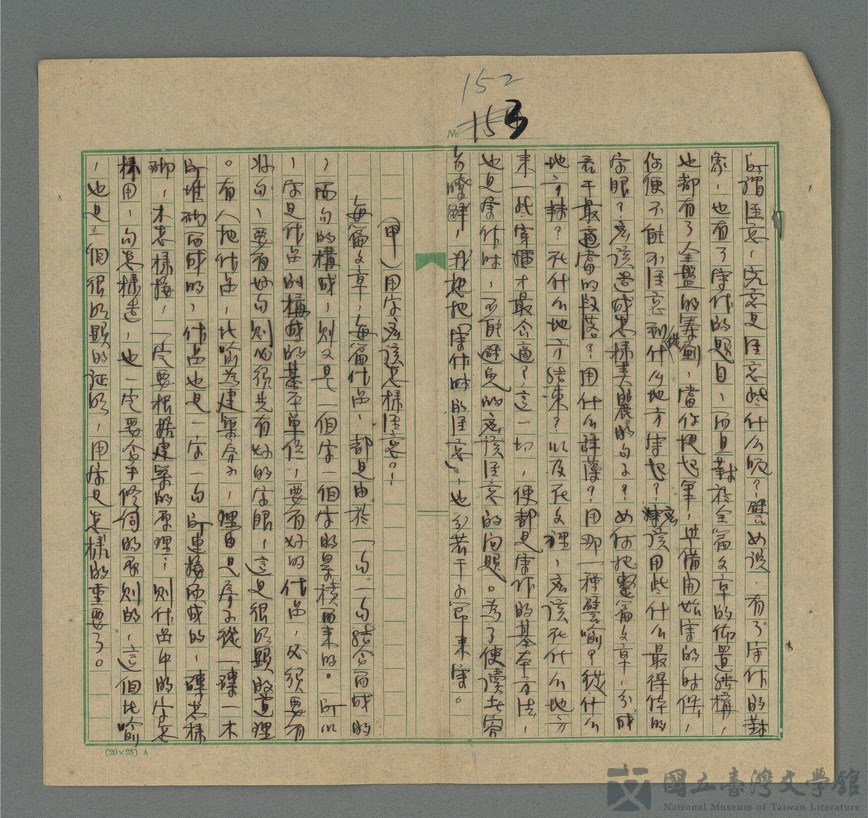 152
No. 153
所謂注意,究竟是注意些什么呢?譬如说,有了寫作的對
象,也有了寫作的題目,而且對於全篇文章的佈置結構,
也都有了全盤的籌劃,當你提起筆,準備開始寫的时候,
你便不能不注意到從什么地方寫起?應該用些什么最得体的
字眼?應該造成怎樣美麗的句子?如何把整篇文章,分成
若干最適當的段落?用什么詞藻?用那一种譬喻?從什么
地方轉?在什么地方結束?以及在文理,應該在什么地方
来一些穿插才最合適?這一切,便都是寫作的基本方法,
也是寫作时,不能避免的應該注意的问题。為了使读者容
易瞭解,我想把「寫作时的注意」也分若干小節来寫。
(甲)用字應該怎樣注意?
每篇文章,每篇作品,都是由於一句一句結合而成的
,而句的構成,則又是一個字一個字的累積而来的。所以
,字是作品的構成的基本單位,要有好的作品,必須要有
好句,要有好句則必須先有好的字眼,這是很明顯的道理
。有人把作品,比喻为建築公寓,理由是房子從一磚一木
所堆砌而成的,作品也是一字一句所連接而成的,磚怎樣
砌,木怎樣接,一定要根據建築的原理;則作品中的字怎
樣用,句怎樣造,也一定要合乎修飾的原則的,這個比喻
,也是一個很明顯的証明,用字是怎樣的重要了。
(20×25) A
國立臺灣文學館
National Museum of Taiwan Literature